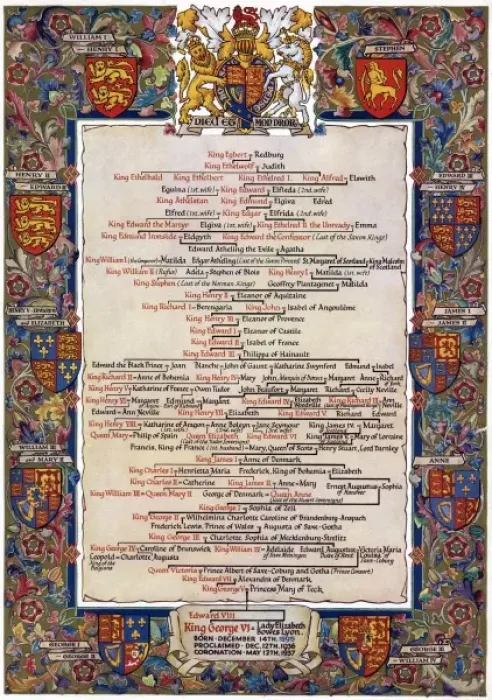 WILLIAM I
— HENRY I
STEPHEN
DIEU ET MON DROIT
King Egbert Redburg
King Ethelwolf Judith
King Ethelbald King Ethelbert King Ethelred I. King Alfred Elswith
Eguina (1st. wife) King Edward Elfleda (2nd. wife)
King Athelstan King Edmund Elgiva Edred
Elfred (1st. wife) King Edgar Elfrida (2nd. wife)
King Edward the Martyr Elgiva (1st. wife) King Ethelred II the Unready Emma
King Edmund Ironside Eldgyth King Edward the Confessor (Last of the Saxon Kings)
Edward Atheling the Exile Agatha
King William I (the Conqueror) Matilda Edgar Atheling (Last of the Saxon Princes) St. Margaret of Scotland King Malcolm of Scotland
King William II (Rufus) Adela Stephen of Blois King Henry I Matilda (1st. wife)
King Stephen (Last of the Norman Kings) Geoffrey Plantagenet Matilda
King Henry II Eleanor of Aquitaine
King Richard I Berengaria King John Isabel of Angoulême
King Henry III Eleanor of Provence
King Edward I Eleanor of Castile
King Edward II Isabel of France
King Edward III Philippa of Hainault
Edward the Black Prince Joan Blanche John of Gaunt Katharine Swynford Edmund Isabel
King Richard II Anne of Bohemia King Henry IV Mary John, Marquis of Dorset Margaret Anne Richard
King Henry V Katharine of France Owen Tudor John Beaufort Margaret Richard Cecily Neville
King Henry VI Margaret Edmund Margaret King Edward IV Elizabeth King Richard III Ann Neville
Edward Ann Neville King Henry VII Elizabeth King Edward V. Richard Edward
King Henry VIII Katharine of Aragon Anne Boleyn Jane Seymour King James IV Margaret
Queen Mary Philip of Spain Queen Elizabeth King Edward VI King James V Mary of Lorraine
Francis, King of France (1st. husband) Mary, Queen of Scots Henry Stuart, Lord Darnley
King James I Anne of Denmark
King Charles I Henrietta Maria Frederick, King of Bohemia Elizabeth
King Charles II Catherine King James II Anne Mary Ernest Augustus of Hanover Sophia
King William III Queen Mary II George of Denmark Queen Anne
King George I Sophia of Zell
King George II Wilhelmina Charlotte Caroline of Brandenburg-Anspach
Frederick Lewis, Prince of Wales Augusta of Saxe-Gotha
King George III Charlotte Sophia of Mecklenburg-Strelitz
King George IV Caroline of Brunswick King William IV Adelaide Edward Augustus Victoria Maria
Leopold Charlotte Augusta
Queen Victoria Prince Albert of Saxe-Coburg and Gotha (Prince Consort)
King Edward VII Alexandra of Denmark
King George V Princess Mary of Teck
Edward VIII
King George VI Lady Elizabeth Bowes Lyon.
BORN · DECEMBER 14TH. 1895
PROCLAIMED · DEC. 12TH. 1936
CORONATION · MAY 12TH. 1937
HENRY II
— EDWARD II
EDWARD III
— HENRY IV
HENRY V
and ELIZABETH
JAMES I
— JAMES II
WILLIAM III
and MARY II
ANNE
GEORGE I
— GEORGE II
GEORGE III
— WILLIAM IV